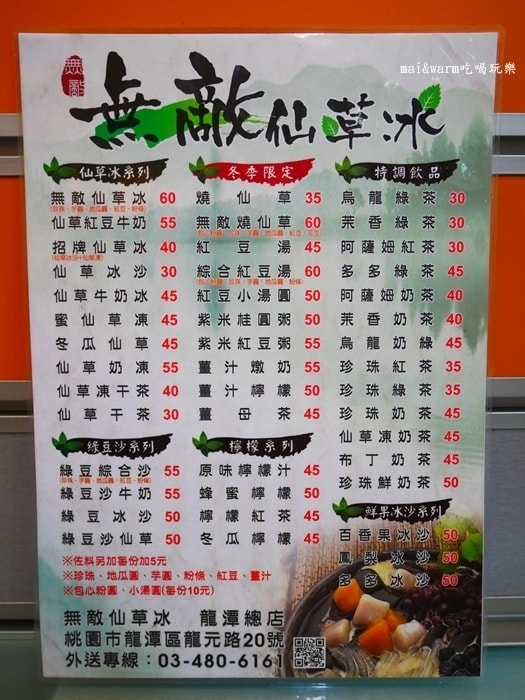 mai&warm吃喝玩樂
無敵
無敵仙草冰
仙草冰系列
無敵仙草冰 60
(珍珠、芋圓、地瓜圓、紅豆、粉條)
仙草紅豆牛奶 55
招牌仙草冰 40
(仙草冰沙+仙草凍)
仙草冰沙 30
仙草牛奶冰 45
蜜仙草凍 45
冬瓜仙草 45
仙草奶凍 55
仙草凍干茶 40
仙草干茶 30
綠豆沙系列
綠豆綜合沙 55
(珍珠、芋圓、地瓜圓、紅豆、粉條)
綠豆沙牛奶 55
綠豆冰沙 50
綠豆沙仙草 50
冬季限定
燒仙草 35
無敵燒仙草 60
紅豆湯 45
綜合紅豆湯 60
紅豆小湯圓 50
紫米桂圓粥 50
紫米紅豆粥 50
薑汁燉奶 55
薑汁檸檬 50
薑母茶 45
檸檬系列
原味檸檬汁 45
蜂蜜檸檬 50
檸檬紅茶 45
冬瓜檸檬 45
特調飲品
烏龍綠茶 30
茉香綠茶 30
阿薩姆紅茶 30
多多綠茶 45
阿薩姆奶茶 40
茉香奶茶 40
烏龍奶綠 45
珍珠紅茶 35
珍珠綠茶 35
珍珠奶茶 45
仙草凍奶茶 45
布丁奶茶 45
珍珠鮮奶茶 50
鮮果冰沙系列
百香果冰沙 50
鳳梨冰沙 50
多多冰沙 50
※佐料另加每份加5元
※珍珠、地瓜圓、芋圓、粉條、紅豆、薑汁
※包心粉圓、小湯圓(每份10元)
無敵仙草冰 龍潭總店
桃園市龍潭區龍元路20號
外送專線：03-480-6161